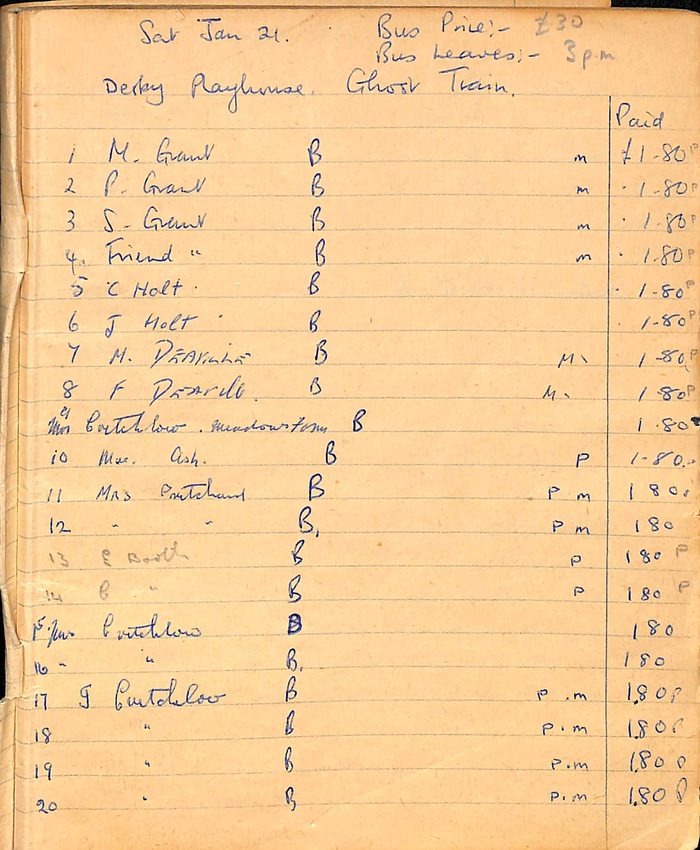 Sat Jan 21. Bus Price:- £30
Bus Leaves:- 3 p.m
Derby Playhouse. Ghost Train.
Paid
1 M. Grant B m £1-80P
2 P. Grant B m 1-80P
3 S. Grant B m 1.80P
4. Friend " B m 1.80P
5 C Holt B 1-80P
6 J Holt B 1-80P
7 M. DEAVILLE B M. 1-80P
8 F DEAVILLE. B M. 1-80P
9 Mrs Critchlow. Meadows Farm B 1.80P
10 Mrs. Ash. B P 1-80.
11 Mrs Pritchard B P m 1 80.
12 " " B. P m 1 80
13 E Booth B P 1 80 P
14 C " B P 1 80 P
15. Mrs Critchlow B 1 80
16 " " B. 1 80
17 J Critchlow B P.m 1.80P
18 " B P.m 1.80P
19 " B P.m 1.80P
20 " B P.m 1.80P